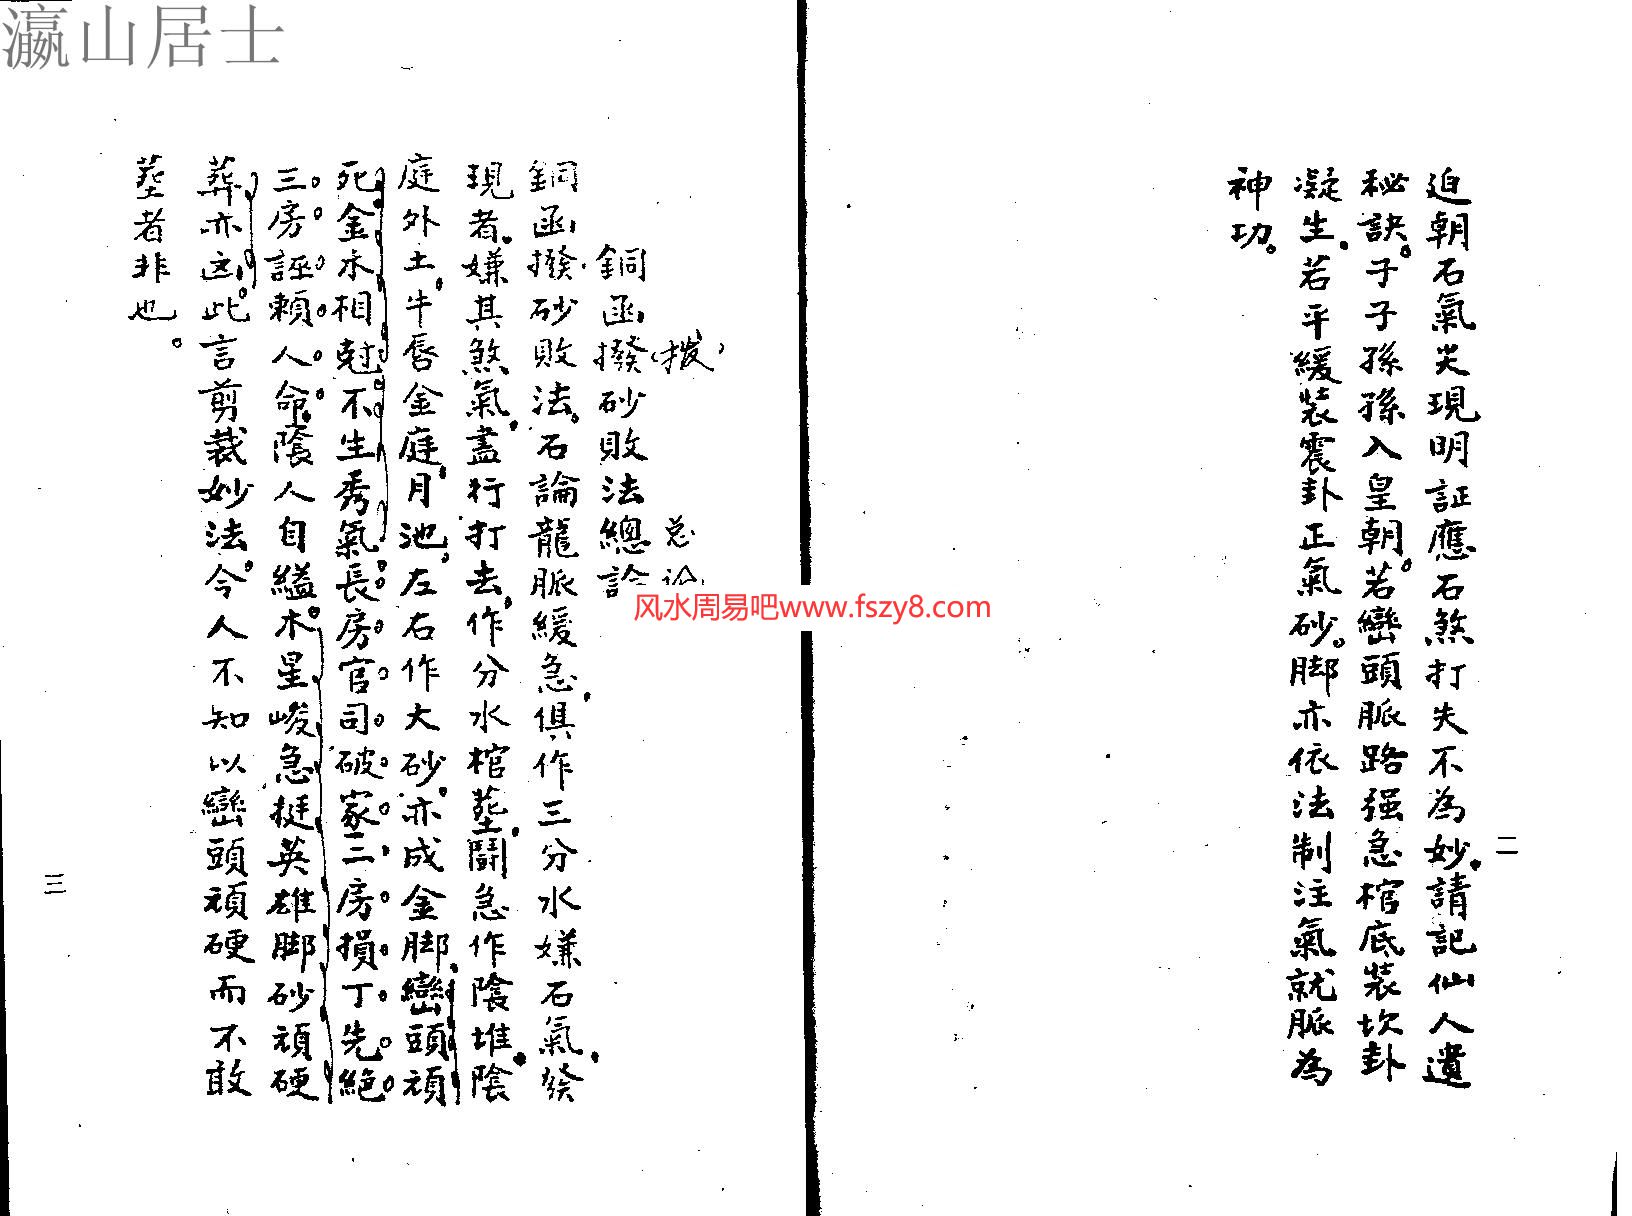 瀛山居士
迫朝石氣尖現明証應石煞打失不為妙。請記仙人遺
秘訣。子子孫孫入皇朝。若巒頭脈路强急棺底装坎卦
凝生。若平緩装震卦正氣砂。脚亦依法制注氣就脈為
神功。
二
(拨) 总论
銅函撥砂敗法總論
銅函撥砂敗法。石論龍脈緩急,俱作三分水嫌石氣,發
現者,嫌其煞氣,盡行打去,作分水棺塟,鬪急作陰堆,陰
庭外土,牛唇金庭,月池,左右作大砂,亦成金脚,巒頭頑
死,金水相尅,不生秀氣。長房官司破家二房損丁先絕
三房誣賴人命,陰人自縊。木星峻急挺英雄脚砂頑硬
葬亦凶,此言剪裁妙法。今人不知以巒頭頑硬而不敢
塟者非也。
三
风水周易吧www.fszy8.com